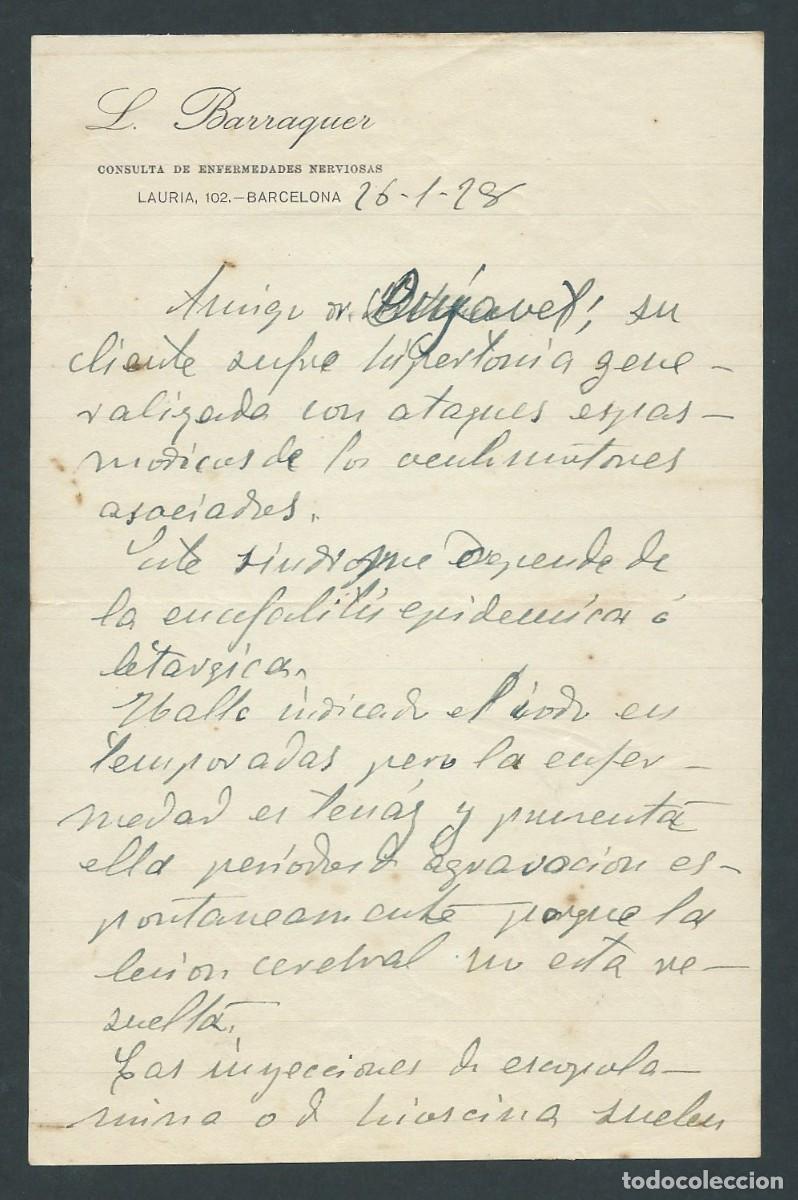 L. Barraquer
CONSULTA DE ENFERMEDADES NERVIOSAS
LAURIA, 102.—BARCELONA 26-1-28
Amigo Dr. ; su
cliente sufre hipertonia gene—
ralizada con ataques espas—
modicos de los oculomotores
asociados.
Este sindrome depende de
la encefalitis epidemica ó
letargica.
Hallo indicado el iodo en
temporadas pero la enfer—
medad es tenáz y presenta
ella períodos de agravacion es—
pontaneamente porque la
lesion cerebral no esta re—
suelta.
Las inyecciones de escopola—
mina o de hioscina suelen
todocoleccion